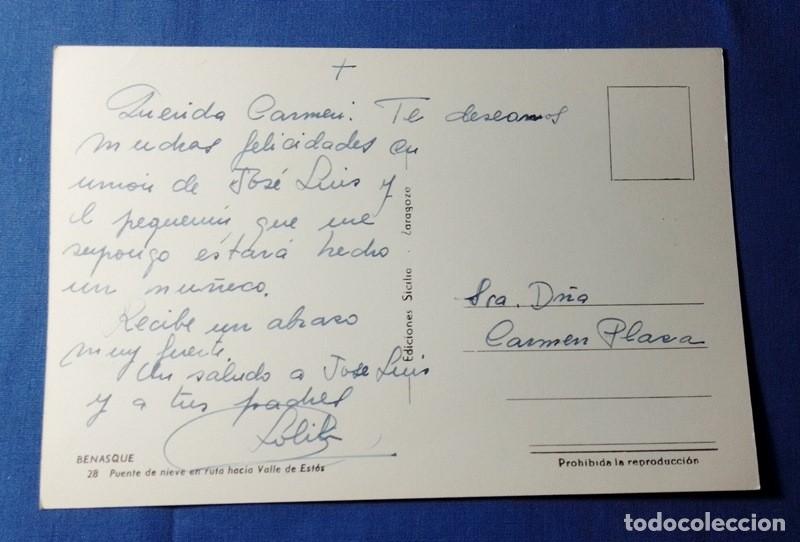 +
Querida Carmen: Te deseamos
muchas felicidades en
unión de José Luis y
el pequenín, que me
supongo estará hecho
un muñeco.
Recibe un abrazo
muy fuerte.
Un saludo a Jose Luis
y a tus padres
Lolita
BENASQUE
28 Puente de nieve en ruta hacia Valle de Estós
Ediciones Sicilia · Zaragoza
Sra. Dña
Carmen Plaza
Prohibida la reproducción
todocoleccion